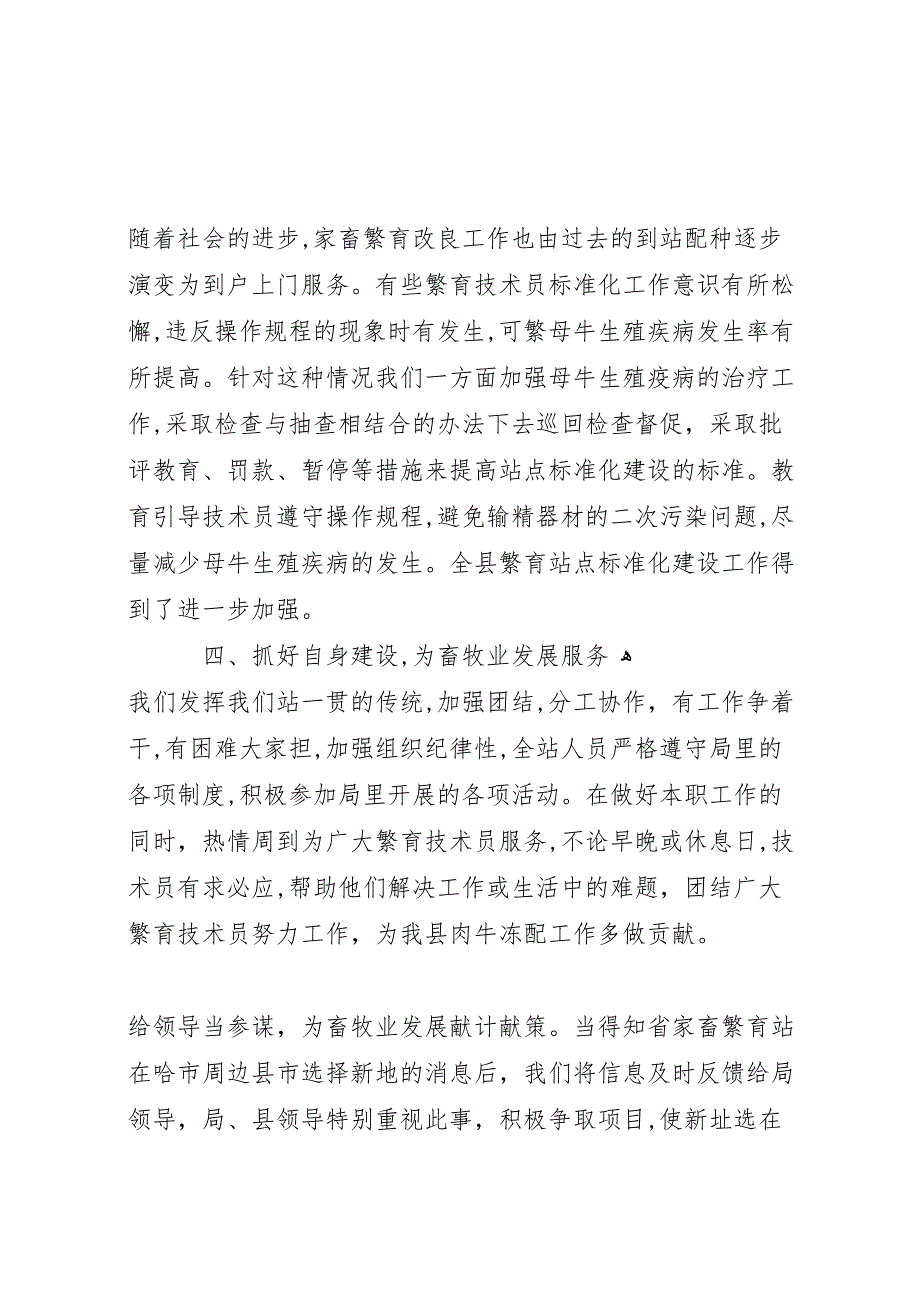 随着社会的进步,家畜繁育改良工作也由过去的到站配种逐步
演变为到户上门服务。有些繁育技术员标准化工作意识有所松
懈,违反操作规程的现象时有发生,可繁母牛生殖疾病发生率有
所提高。针对这种情况我们一方面加强母牛生殖疫病的治疗工
作,采取检查与抽查相结合的办法下去巡回检查督促，采取批
评教育、罚款、暂停等措施来提高站点标准化建设的标准。教
育引导技术员遵守操作规程,避免输精器材的二次污染问题,尽
量减少母牛生殖疾病的发生。全县繁育站点标准化建设工作得
到了进一步加强。
四、抓好自身建设,为畜牧业发展服务 ﻫ
我们发挥我们站一贯的传统,加强团结,分工协作，有工作争着
干,有困难大家担,加强组织纪律性,全站人员严格遵守局里的
各项制度,积极参加局里开展的各项活动。在做好本职工作的
同时，热情周到为广大繁育技术员服务,不论早晚或休息日,技
术员有求必应,帮助他们解决工作或生活中的难题，团结广大
繁育技术员努力工作，为我县肉牛冻配工作多做贡献。
给领导当参谋，为畜牧业发展献计献策。当得知省家畜繁育站
在哈市周边县市选择新地的消息后，我们将信息及时反馈给局
领导，局、县领导特别重视此事，积极争取项目,使新址选在